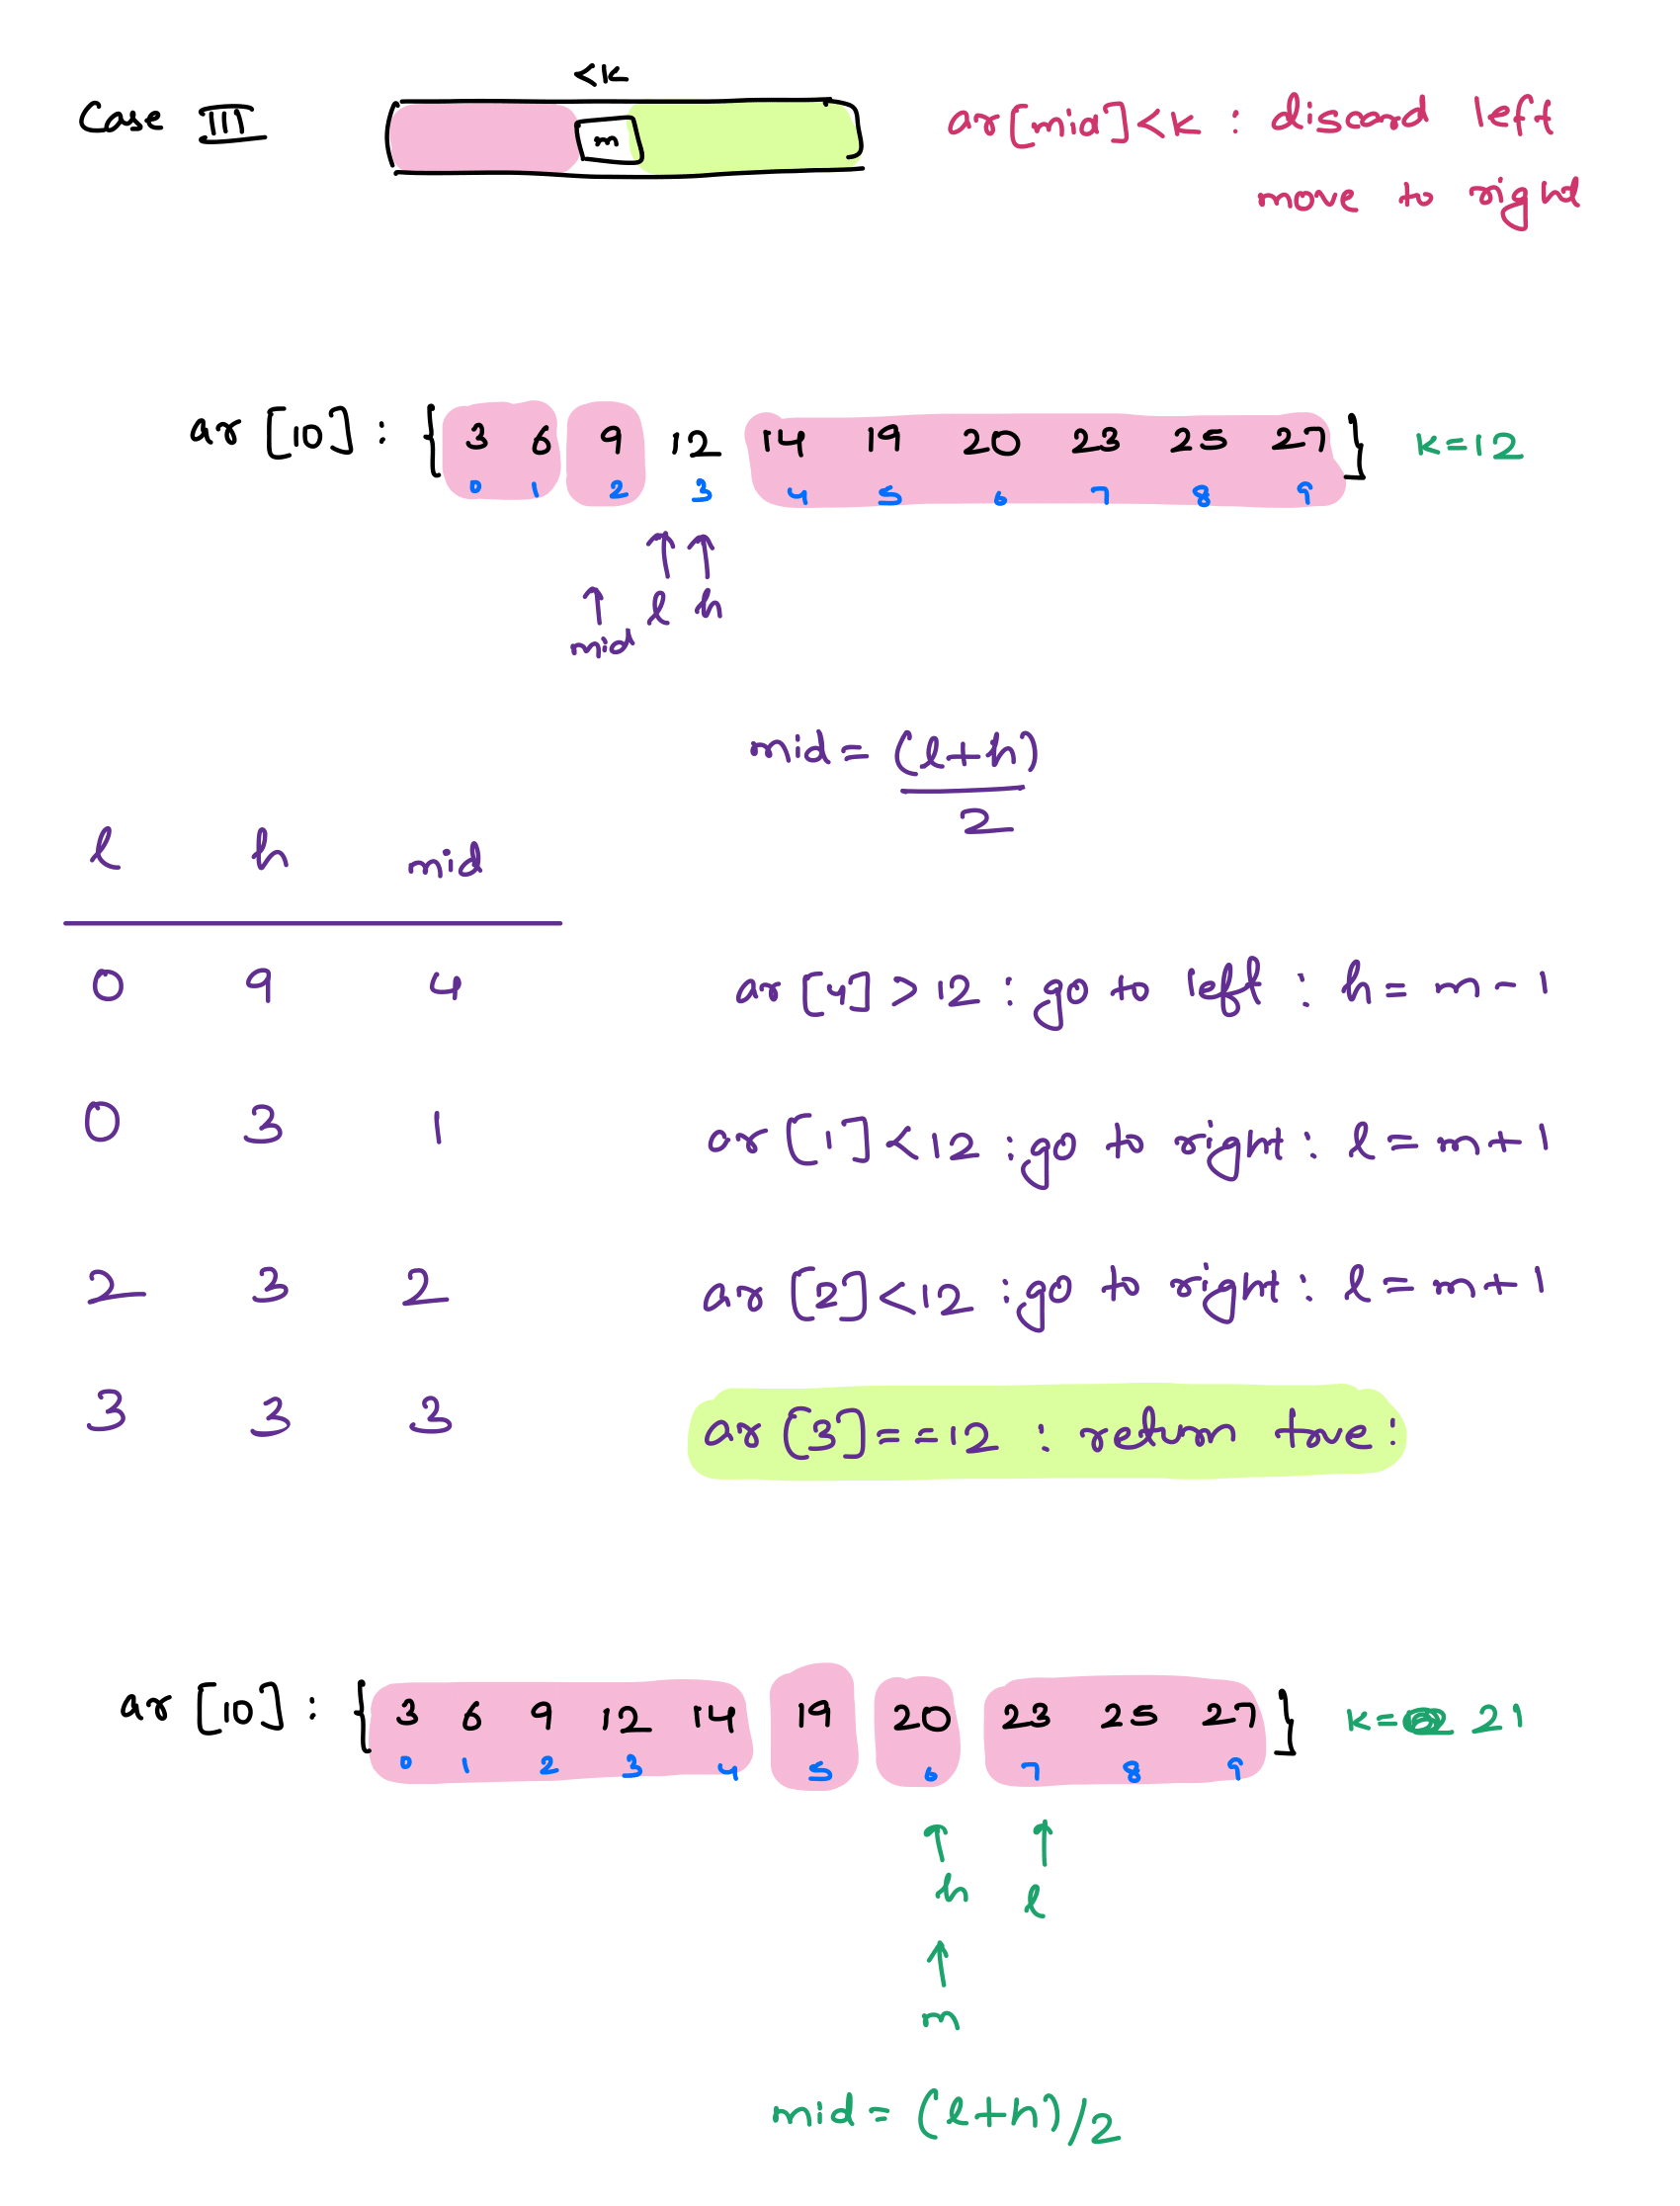 <k
Case III m ar[mid]<k : discard left
move to right
ar [10] : { 3 6 9 12 14 19 20 23 25 27 } k=12
0 1 2 3 4 5 6 7 8 9
l h
mid
mid = (l+h)
2
l h mid
0 9 4 ar [4] > 12 : go to left : h = m - 1
0 3 1 ar [1] < 12 : go to right : l = m + 1
2 3 2 ar [2] < 12 : go to right : l = m + 1
3 3 3 ar [3] == 12 : return true :
ar [10] : { 3 6 9 12 14 19 20 23 25 27 } k= 21
0 1 2 3 4 5 6 7 8 9
h l
m
mid = (l+h)/2